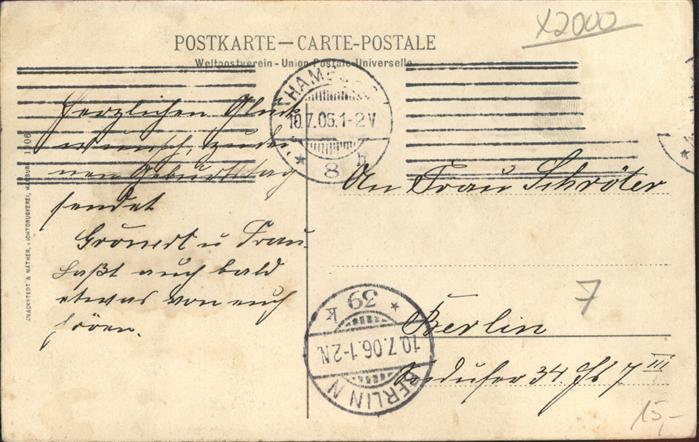 x2000
POSTKARTE — CARTE-POSTALE
Weltpostverein - Union Postale Universelle
HAMBURG
10.7.06.1-2V
* 8 h
Herzlichen Glück
wunsch zu dei
nen Geburtstag
sendet
Grönert u Frau.
Laßt auch bald
etwas von euch
hören.
An Frau Schröter
Berlin
34. Hf 7 III
39 *
k
10.7.06.1-2N.
BERLIN N
KNACKSTEDT & NÄTHER, LICHTDRUCKEREI, HAMBURG 1906
7
15,-